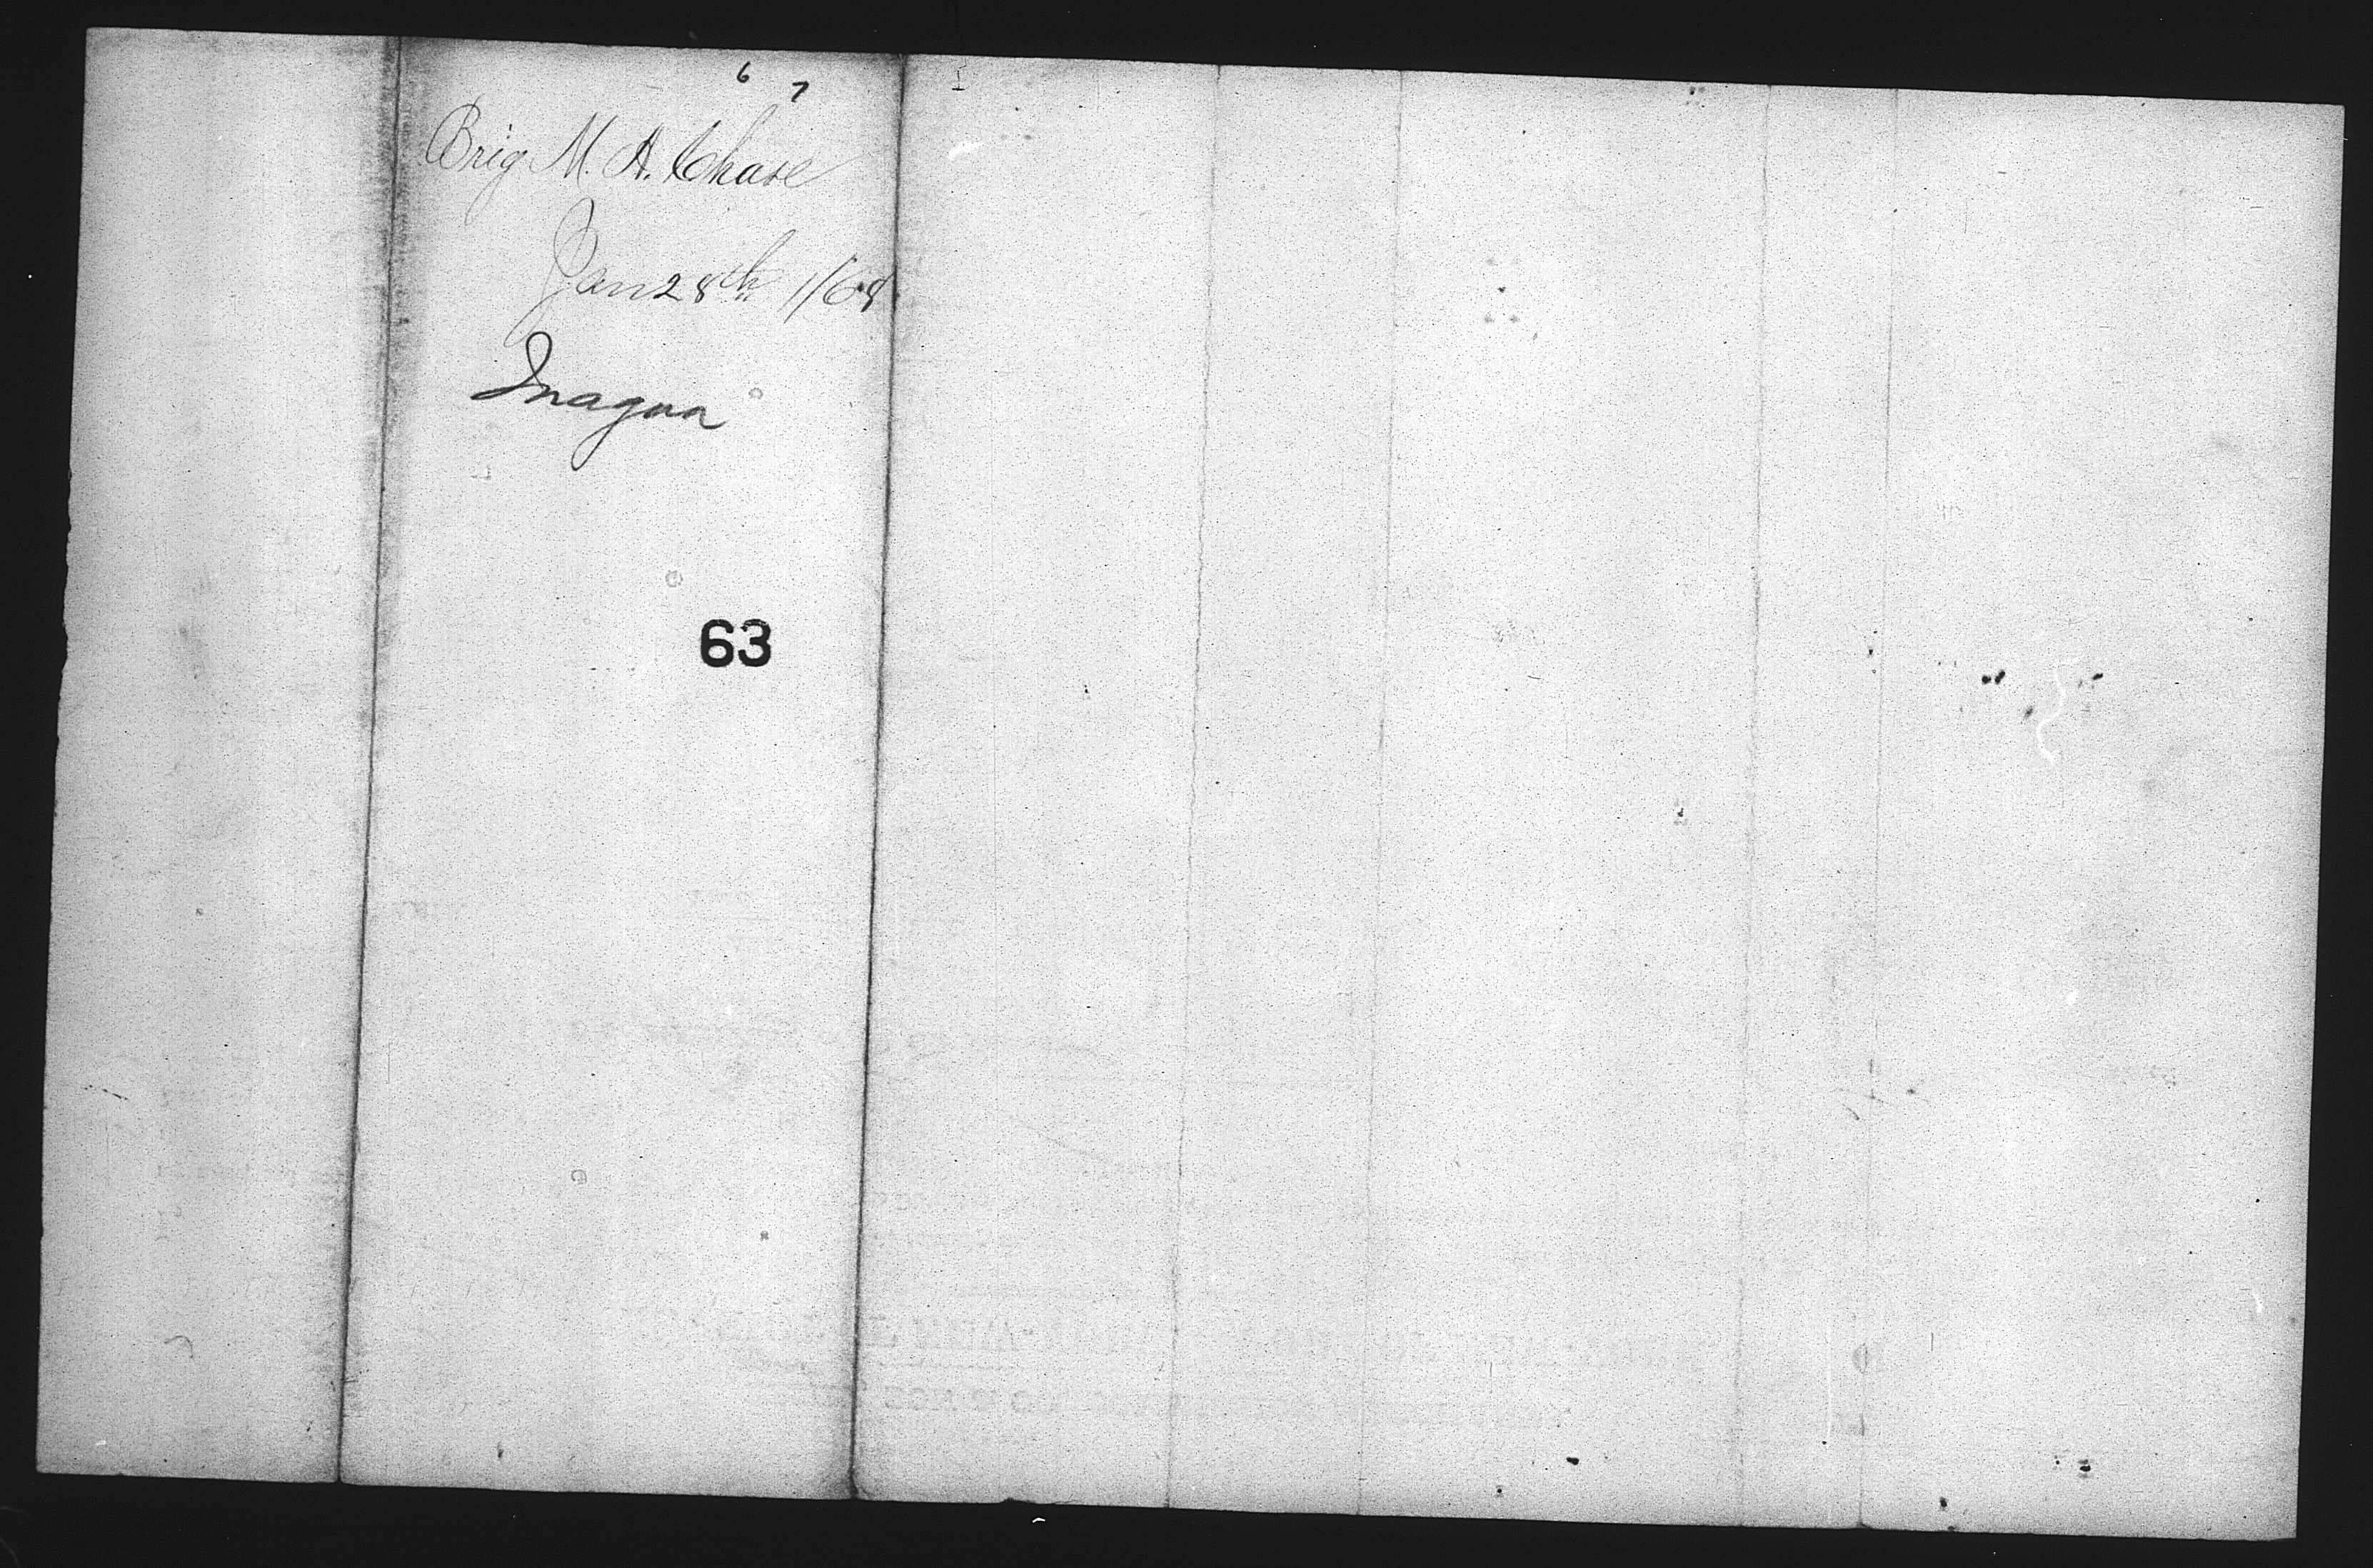 6 7
Brig M. A. Chase
Jan 28th 1/68
Inagua
63